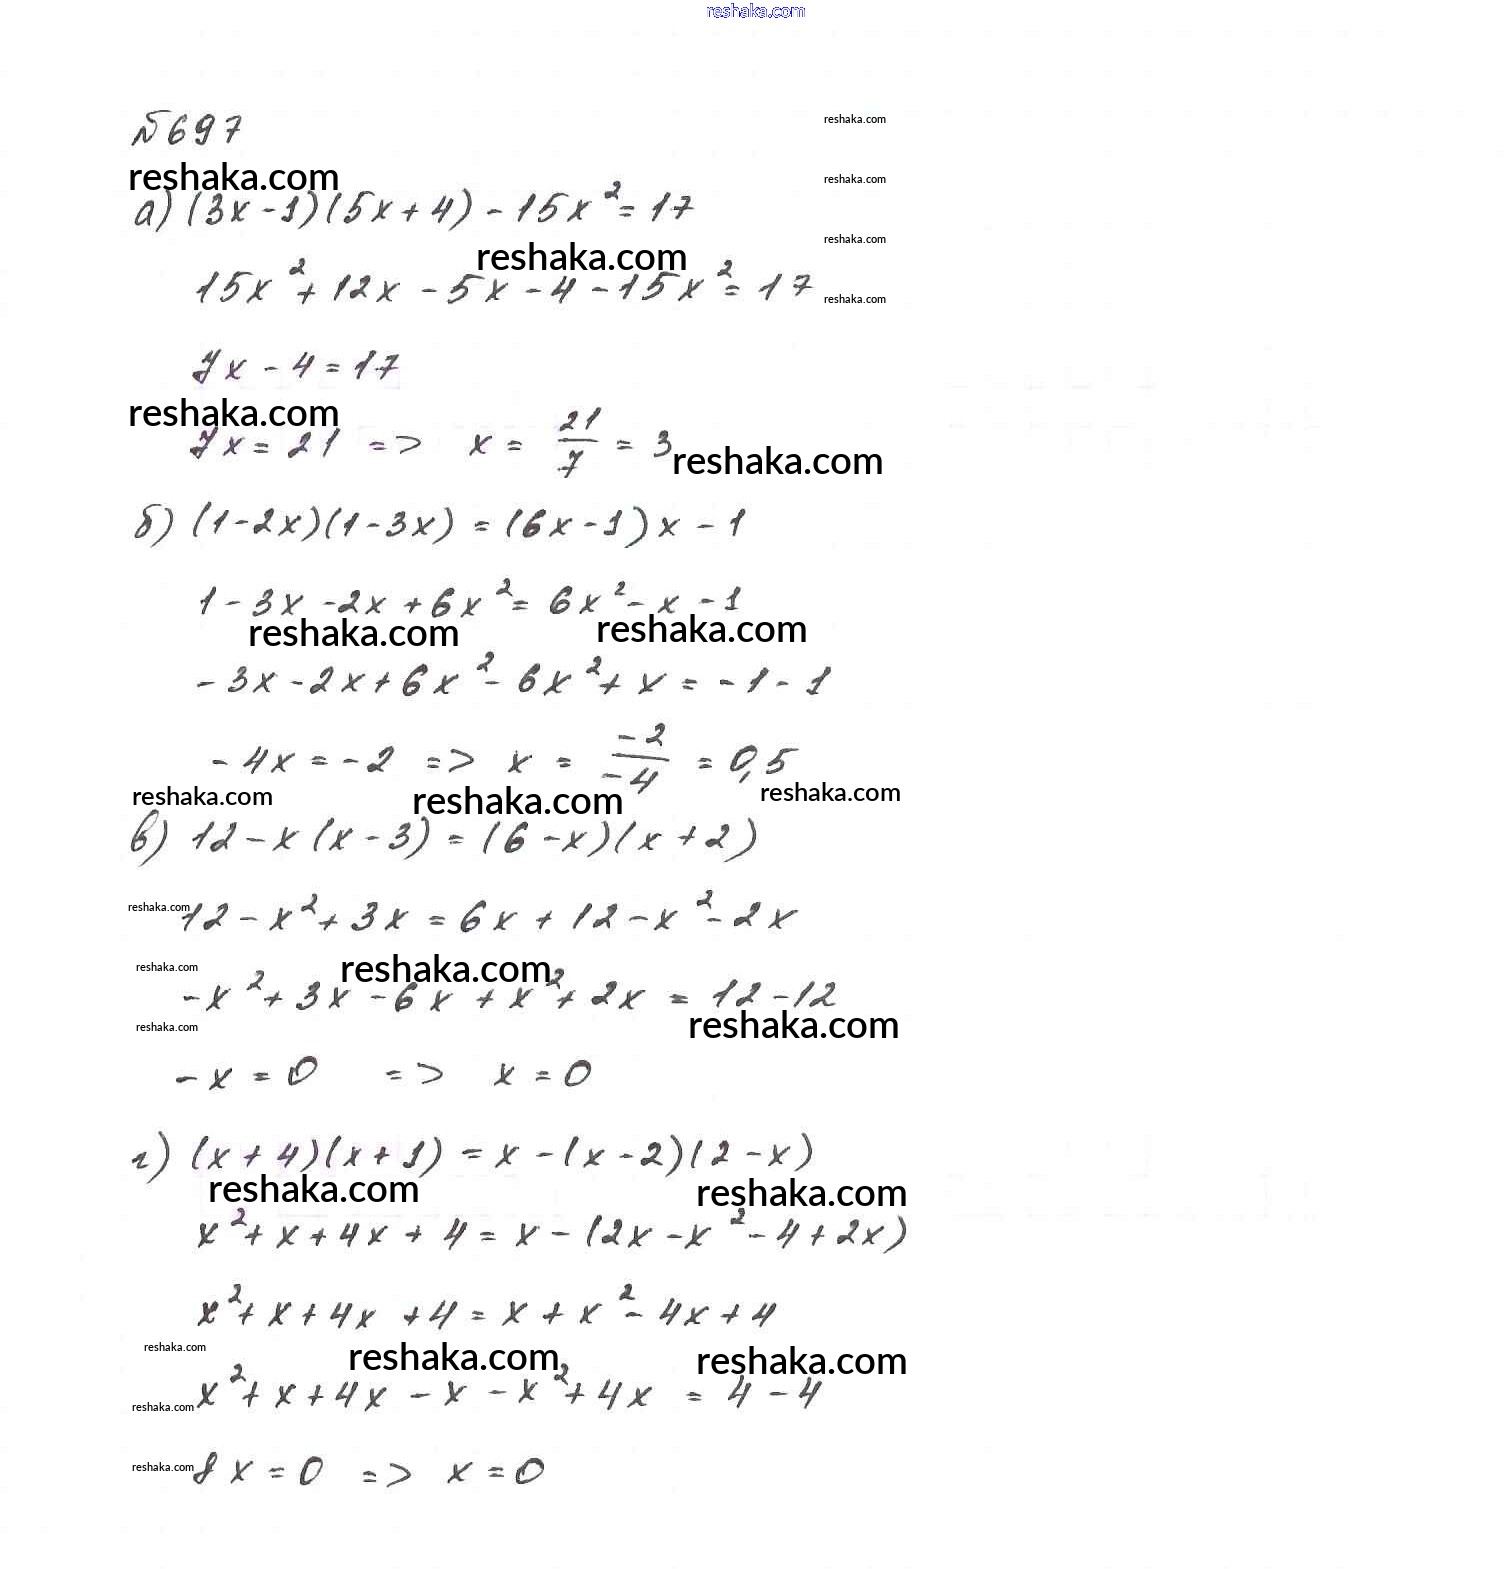 reshaka.com
№697
reshaka.com
reshaka.com
reshaka.com
а) (3x-1)(5x+4) - 15x² = 17
reshaka.com
reshaka.com
15x² + 12x - 5x - 4 - 15x² = 17
reshaka.com
7x - 4 = 17
reshaka.com
7x = 21 => x = 21/7 = 3
reshaka.com
б) (1-2x)(1-3x) = (6x-1)x - 1
1 - 3x - 2x + 6x² = 6x² - x - 1
reshaka.com reshaka.com
- 3x - 2x + 6x² - 6x² + x = -1 - 1
- 4x = -2 => x = -2/-4 = 0,5
reshaka.com reshaka.com reshaka.com
в) 12 - x(x-3) = (6-x)(x+2)
reshaka.com
12 - x² + 3x = 6x + 12 - x² - 2x
reshaka.com reshaka.com
-x² + 3x - 6x + x² + 2x = 12 - 12
reshaka.com reshaka.com
-x = 0 => x = 0
г) (x+4)(x+1) = x - (x-2)(2-x)
reshaka.com reshaka.com
x² + x + 4x + 4 = x - (2x - x² - 4 + 2x)
x² + x + 4x + 4 = x + x² - 4x + 4
reshaka.com reshaka.com reshaka.com
x² + x + 4x - x - x² + 4x = 4 - 4
reshaka.com
reshaka.com
8x = 0 => x = 0